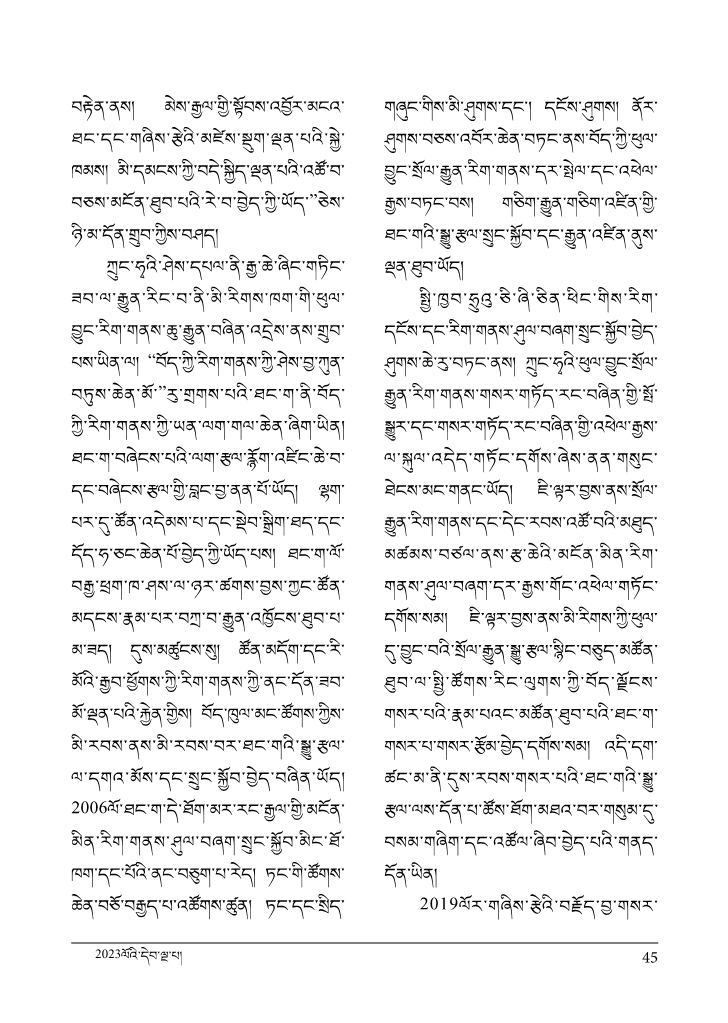 བརྟེན་ནས། མེས་རྒྱལ་གྱི་སྟོབས་འབྱོར་མངའ་
ཐང་དང་གཞིས་རྩེའི་མཛེས་སྡུག་ལྡན་པའི་སྐྱེ་
ཁམས། མི་དམངས་ཀྱི་བདེ་སྐྱིད་ལྡན་པའི་འཚོ་བ་
བཅས་མངོན་ཐུབ་པའི་རེ་བ་བྱེད་ཀྱི་ཡོད་”ཅེས་
ཉི་མ་དོན་གྲུབ་ཀྱིས་བཤད།
ཀྲུང་ཧྭའི་ཤེས་དཔལ་ནི་རྒྱ་ཆེ་ཞིང་གཏིང་
ཟབ་ལ་རྒྱུན་རིང་བ་ནི་མི་རིགས་ཁག་གི་ཕུལ་
བྱུང་རིག་གནས་ཆུ་རྒྱུན་བཞིན་འདྲེས་ནས་གྲུབ་
པས་ཡིན་ལ། “བོད་ཀྱི་རིག་གནས་ཀྱི་ཤེས་བྱ་ཀུན་
བཏུས་ཆེན་མོ་”རུ་གྲགས་པའི་ཐང་ག་ནི་བོད་
ཀྱི་རིག་གནས་ཀྱི་ཡན་ལག་གལ་ཆེན་ཞིག་ཡིན།
ཐང་ག་བཞེངས་པའི་ལག་རྩལ་རྙོག་འཛིང་ཆེ་བ་
དང་བཞེངས་རྩལ་གྱི་བླང་བྱ་ནན་པོ་ཡོད། ལྷག་
པར་དུ་ཚོན་འདེམས་པ་དང་སྡེབ་སྒྲིག་ཐད་དང་
དོད་ཧ་ཅང་ཆེན་པོ་བྱེད་ཀྱི་ཡོད་པས། ཐང་ག་ལོ་
བརྒྱ་ཕྲག་ཁ་ཤས་ལ་ཉར་ཚགས་བྱས་ཀྱང་ཚོན་
མདངས་རྣམ་པར་བཀྲ་བ་རྒྱུན་འཁྱོངས་ཐུབ་པ་
མ་ཟད། དུས་མཚུངས་སུ། ཚོན་མདོག་དང་རི་
མོའི་རྒྱབ་ཕྱོགས་ཀྱི་རིག་གནས་ཀྱི་ནང་དོན་ཟབ་
མོ་ལྡན་པའི་རྐྱེན་གྱིས། བོད་ཁུལ་མང་ཚོགས་ཀྱིས་
མི་རབས་ནས་མི་རབས་བར་ཐང་གའི་སྒྱུ་རྩལ་
ལ་དགའ་མོས་དང་སྲུང་སྐྱོབ་བྱེད་བཞིན་ཡོད།
2006ལོ་ཐང་ག་དེ་ཐོག་མར་རང་རྒྱལ་གྱི་མངོན་
མིན་རིག་གནས་ཤུལ་བཞག་སྲུང་སྐྱོབ་མིང་ཐོ་
ཁག་དང་པོའི་ནང་བཅུག་པ་རེད། ཏང་གི་ཚོགས་
ཆེན་བཅོ་བརྒྱད་པ་འཚོགས་ཚུན། ཏང་དང་སྲིད་
གཞུང་གིས་མི་ཤུགས་དང་། དངོས་ཤུགས། ནོར་
ཤུགས་བཅས་འབོར་ཆེན་བཏང་ནས་བོད་ཀྱི་ཕུལ་
བྱུང་སྲོལ་རྒྱུན་རིག་གནས་དར་སྤེལ་དང་འཕེལ་
རྒྱས་བཏང་བས། གཅིག་རྒྱུན་གཅིག་འཛིན་གྱི་
ཐང་གའི་སྒྱུ་རྩལ་སྲུང་སྐྱོབ་དང་རྒྱུན་འཛིན་ནུས་
ལྡན་ཐུབ་ཡོད།
སྤྱི་ཁྱབ་ཧྲུའུ་ཅི་ཞི་ཅིན་ཕིང་གིས་རིག་
དངོས་དང་རིག་གནས་ཤུལ་བཞག་སྲུང་སྐྱོབ་བྱེད་
ཤུགས་ཆེ་རུ་བཏང་ནས། ཀྲུང་ཧྭའི་ཕུལ་བྱུང་སྲོལ་
རྒྱུན་རིག་གནས་གསར་གཏོད་རང་བཞིན་གྱི་སྤོ་
སྒྱུར་དང་གསར་གཏོད་རང་བཞིན་གྱི་འཕེལ་རྒྱས་
ལ་སྐུལ་འདེད་གཏོང་དགོས་ཞེས་ནན་གསུང་
ཐེངས་མང་གནང་ཡོད། ཇི་ལྟར་བྱས་ནས་སྲོལ་
རྒྱུན་རིག་གནས་དང་དེང་རབས་འཚོ་བའི་མཐུད་
མཚམས་བཙལ་ནས་རྩ་ཆེའི་མངོན་མིན་རིག་
གནས་ཤུལ་བཞག་དར་རྒྱས་གོང་འཕེལ་གཏོང་
དགོས་སམ། ཇི་ལྟར་བྱས་ནས་མི་རིགས་ཀྱི་ཕུལ་
དུ་བྱུང་བའི་སྲོལ་རྒྱུན་སྒྱུ་རྩལ་སྙིང་བཅུད་མཚོན་
ཐུབ་ལ་སྤྱི་ཚོགས་རིང་ལུགས་ཀྱི་བོད་ལྗོངས་
གསར་པའི་རྣམ་པའང་མཚོན་ཐུབ་པའི་ཐང་ག་
གསར་པ་གསར་རྩོམ་བྱེད་དགོས་སམ། འདི་དག་
ཚང་མ་ནི་དུས་རབས་གསར་པའི་ཐང་གའི་སྒྱུ་
རྩལ་ལས་དོན་པ་ཚོས་ཐོག་མཐའ་བར་གསུམ་དུ་
བསམ་གཞིག་དང་འཚོལ་ཞིབ་བྱེད་པའི་གནད་
དོན་ཡིན།
2019ལོར་གཞིས་རྩེའི་བརྗོད་བྱ་གསར་
2023ལོའི་དེབ་ལྔ་པ།
45